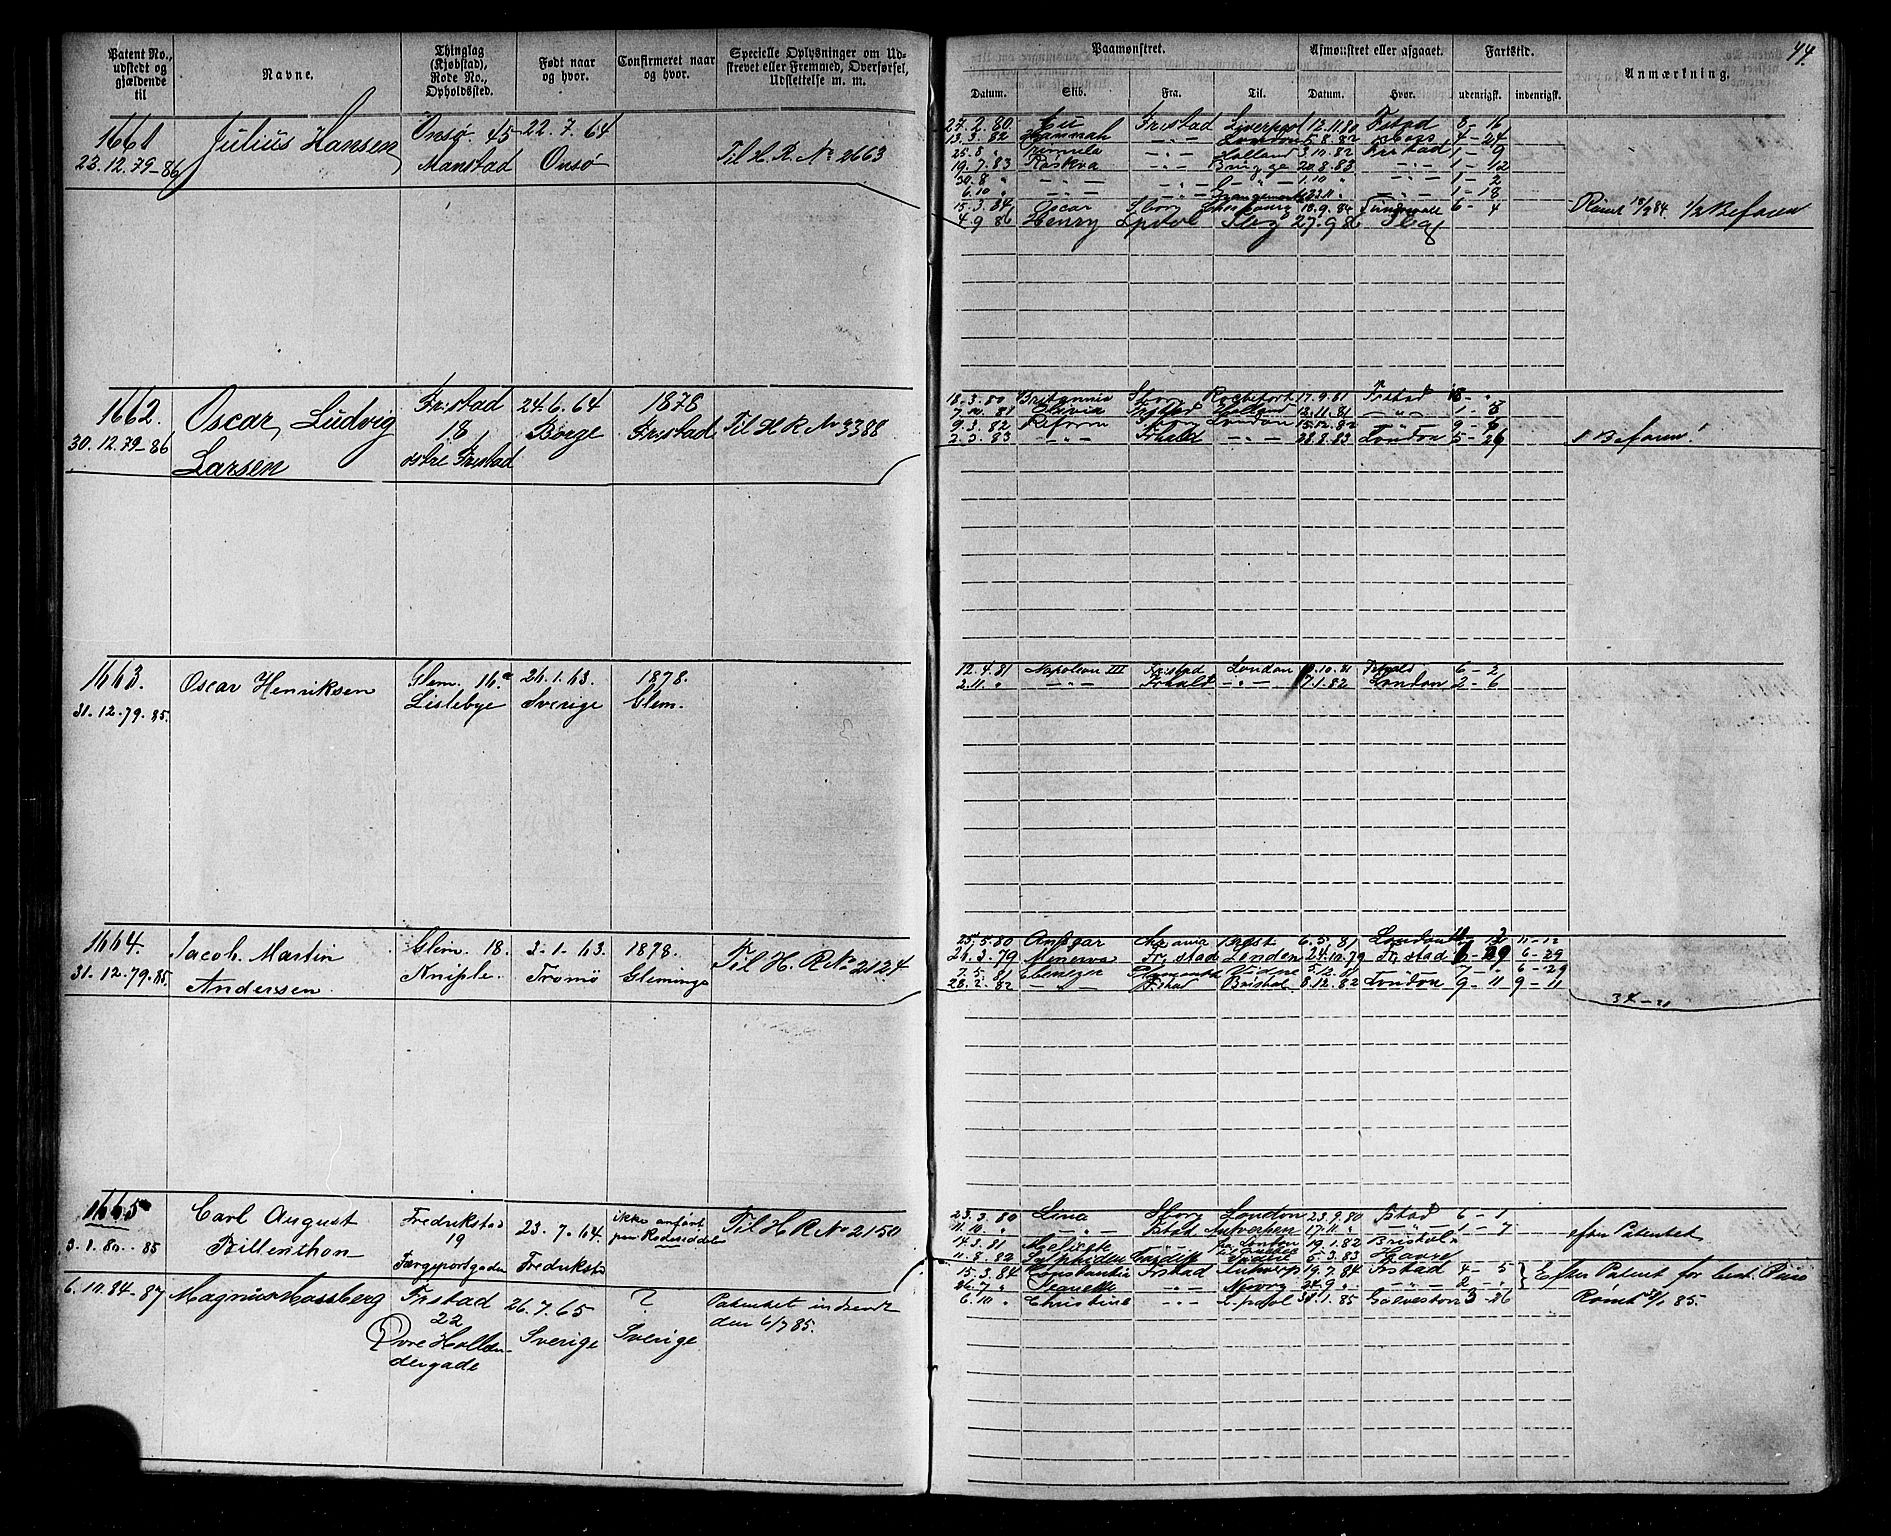 Patent No., udstedt og gjældende til
Navne.
Thinglag (Kjøbstad), Rode No., Opholdssted.
Født naar og hvor.
Confirmeret naar og hvor.
Specielle Oplysninger om Udstrevet eller Fremmed, Overførsel, Udslettelse m. m.
Paamønstret.
Afmønstret eller afgaaet.
Fartstid.
Anmærkning.
44.
Datum.
Skib.
Fra.
Til.
Datum.
Hvor.
udenrigst.
indenrigst.
1661
23.12.79-86
Julius Hansen
Onsø 45
Manstad
22.7.64
Onsø
Til H. R. No 2663
27.2.80 Fristad Liverpool 12.11.80 Fstad 8-16
13.3.82 Hannah -"- London 5.8.82 Moss 4-24
25.8 " -"- Holland 3.10.82 Fristad 1-9
19.7.83 Røskva -"- Brügge 20.8.83 -"- 1-12
30.8 " -"- -"- 1.10 " 1-2
6.10 " -"- -"- 23.11 " -"- 1-18
15.3.84 Oscar Sborg 18.9.84 Sundsvall 6-4
4.9 86 Henry Lpool Sbg 27.9.86 Sbg
Rømt 18/9 84 1/2 Befaren
1662.
30.12.79-86
Oscar Ludvig
Larsen
Fristad
18
østre Fristad
24.6.64
Borge
1878
Fristad
Til H R No 3388
18.3.80 Britannia Sborg Rochefort 17.9.81 Fstad
7.10.81 Olivia Fristad Holland 12.11.81 -"- 1-3
9.3.82 Reform Sborg London 15.12.82 -"- 9-6
2.3.83 -"- Frhald -"- 28.8.83 London 5-26
1 Befaren!
1663.
31.12.79-85.
Oscar Henriksen
Glem. 16.a
Lislebye
26.1.63.
Sverige
1878.
Glem.
12.4.81 Napoleon III Fristad London 10.81 Frhald 6-2
2.11. " -"- Frhald -"- 7.1.82 London 2-6
1664.
31.12.79-85.
Jacob Martin
Andersen
Glem. 18.
Kniple.
3-1.63.
Tromø
1878.
Glemminge
Til H. R. No 2124
25.5.80 Ansgar Brest 6.5.81 London 11-12
3.79 Minerva Fr.stad London 24.10.79 Fr.stad 6-29 6-29
7.5.81 Ebenezer 7-" 6-29
28.2.82 -"- Fstad Bristol 8.12.82 London 9-11 9-11
34-21
1665
3.1.80.-85
Carl August
Billenthon
Fredrikstad
19
Færgeportgaden
23.7.64.
Fredrikstad
ikke anført
paa Rodeseddelen
Til H R No 2150
23.3.80 Lina Sborg London 23.9.80 Fstad 6-1
11.10 " " Fstad Antverpen 17.11 " -"- 1-7
14.3.81 London 19.1.82 Bristol
11.8.82 Cardiff 5.3.83 Havre
efter Patentet
6.10.84-87
Magnus Mossberg
Fristad
22
Øvre Hollen-
dergade
26.7.65
Sverige
?
Sverige
Patentet indsendt
den 6/7 85.
15.3.84 Konstantin Frstad Antverp 19.7.84 Frstad 4-5
26.7 " Jeanette -"- 24.9 " -"- 2-"
6.10 " Christine -"- L.pool 31.1.85 Galveston 3-26
Efter Patent for best. Reise
Rømt 85.